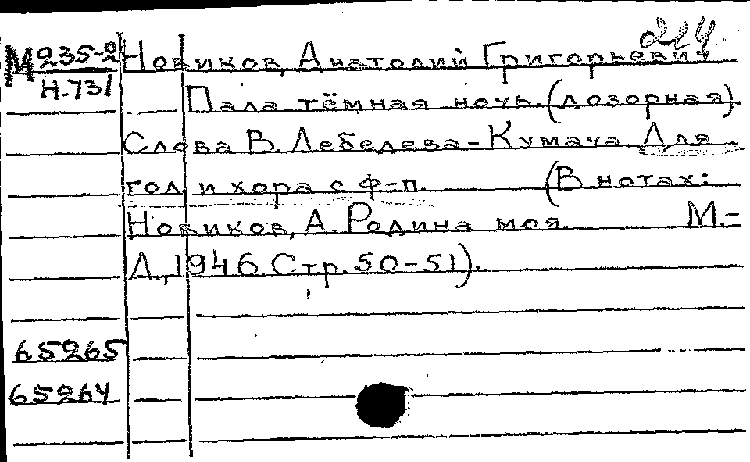 224
М 235-2 Новиков, Анатолий Григорьевич
Н-731
Пала тёмная ночь (дозорная).
Слова В. Лебедева-Кумача. Для
гол. и хора с ф-п. (В нотах:
Новиков, А. Родина моя. М.-
Л., 1946. Стр. 50-51).
65265
65264